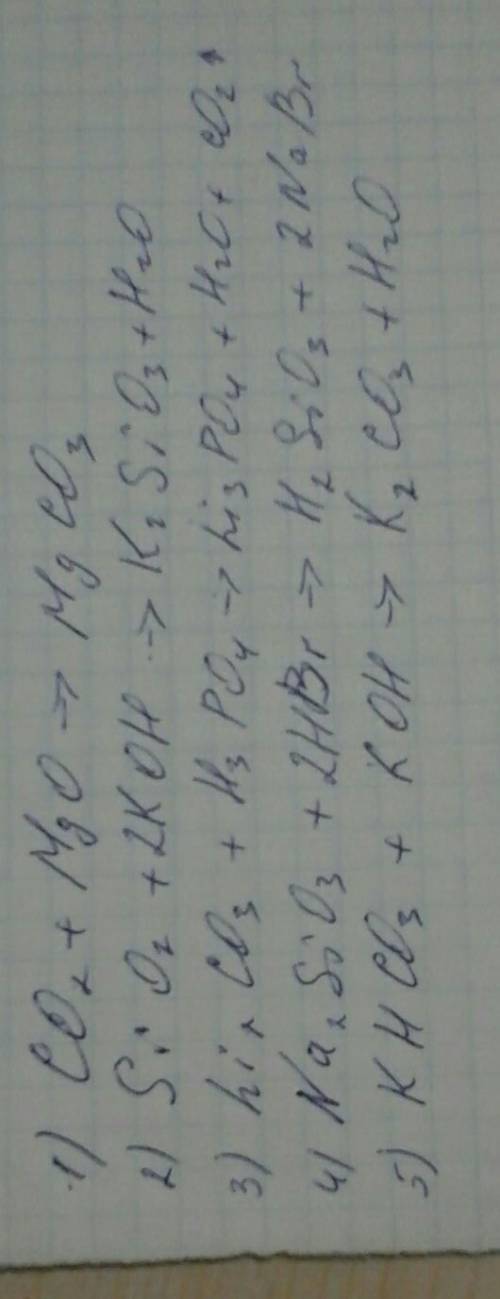 1) CO₂ + MgO → MgCO₃
2) SiO₂ + 2KOH → K₂SiO₃ + H₂O
3) Li₂CO₃ + H₃PO₄ → Li₃PO₄ + H₂O + CO₂↑
4) Na₂SiO₃ + 2HBr → H₂SiO₃ + 2NaBr
5) KHCO₃ + KOH → K₂CO₃ + H₂O